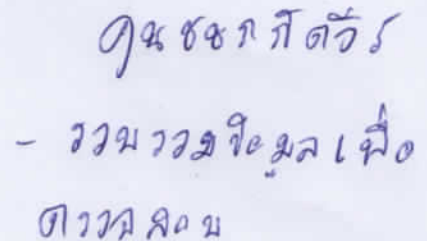 คุณชนกก์ดวีร์
- รวบรวมข้อมูลเพื่อ
ตรวจสอบ